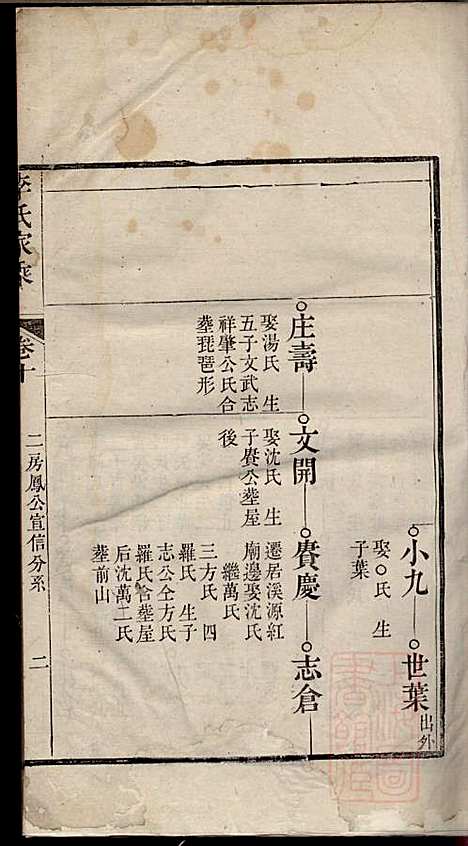 小九
娶○氏生
子葉
世葉
出外
庄壽
娶湯氏生
五子文武志
祥肇公氏合
塟琵琶形
文開
娶沈氏生
子賡公塟屋
後
賡慶
遷居溪源紅
廟邊娶沈氏
繼萬氏
三方氏四
羅氏生子
志公仝方氏
羅氏合塟屋
后沈萬二氏
塟前山
志倉
李氏家乘
卷十
二房鳳公宣信分系
二